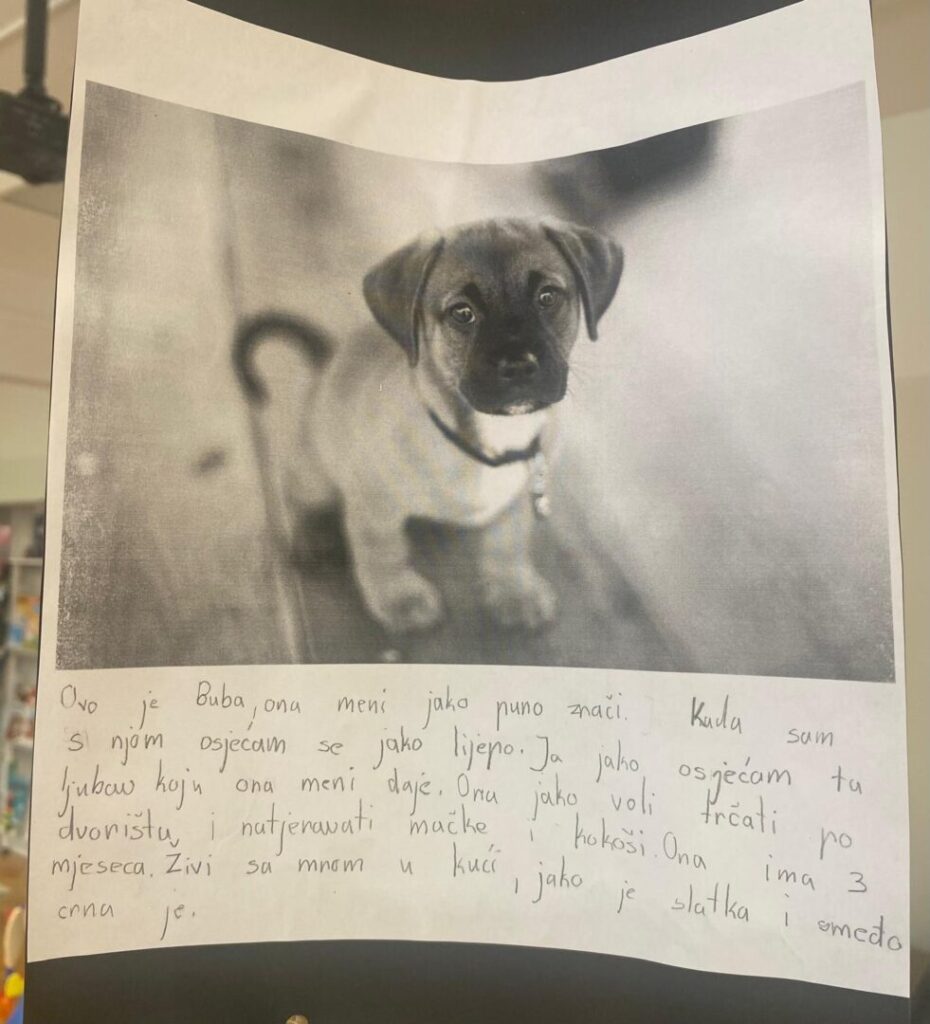 Ovo je Buba, ona meni jako puno znači. Kada sam
s njom osjećam se jako lijepo. Ja jako osjećam tu
ljubav koju ona meni daje. Ona jako voli trčati po
dvorištu i natjeravati mačke i kokoši. Ona ima 3
mjeseca. Živi sa mnom u kući, jako je slatka i smeđo
crna je.